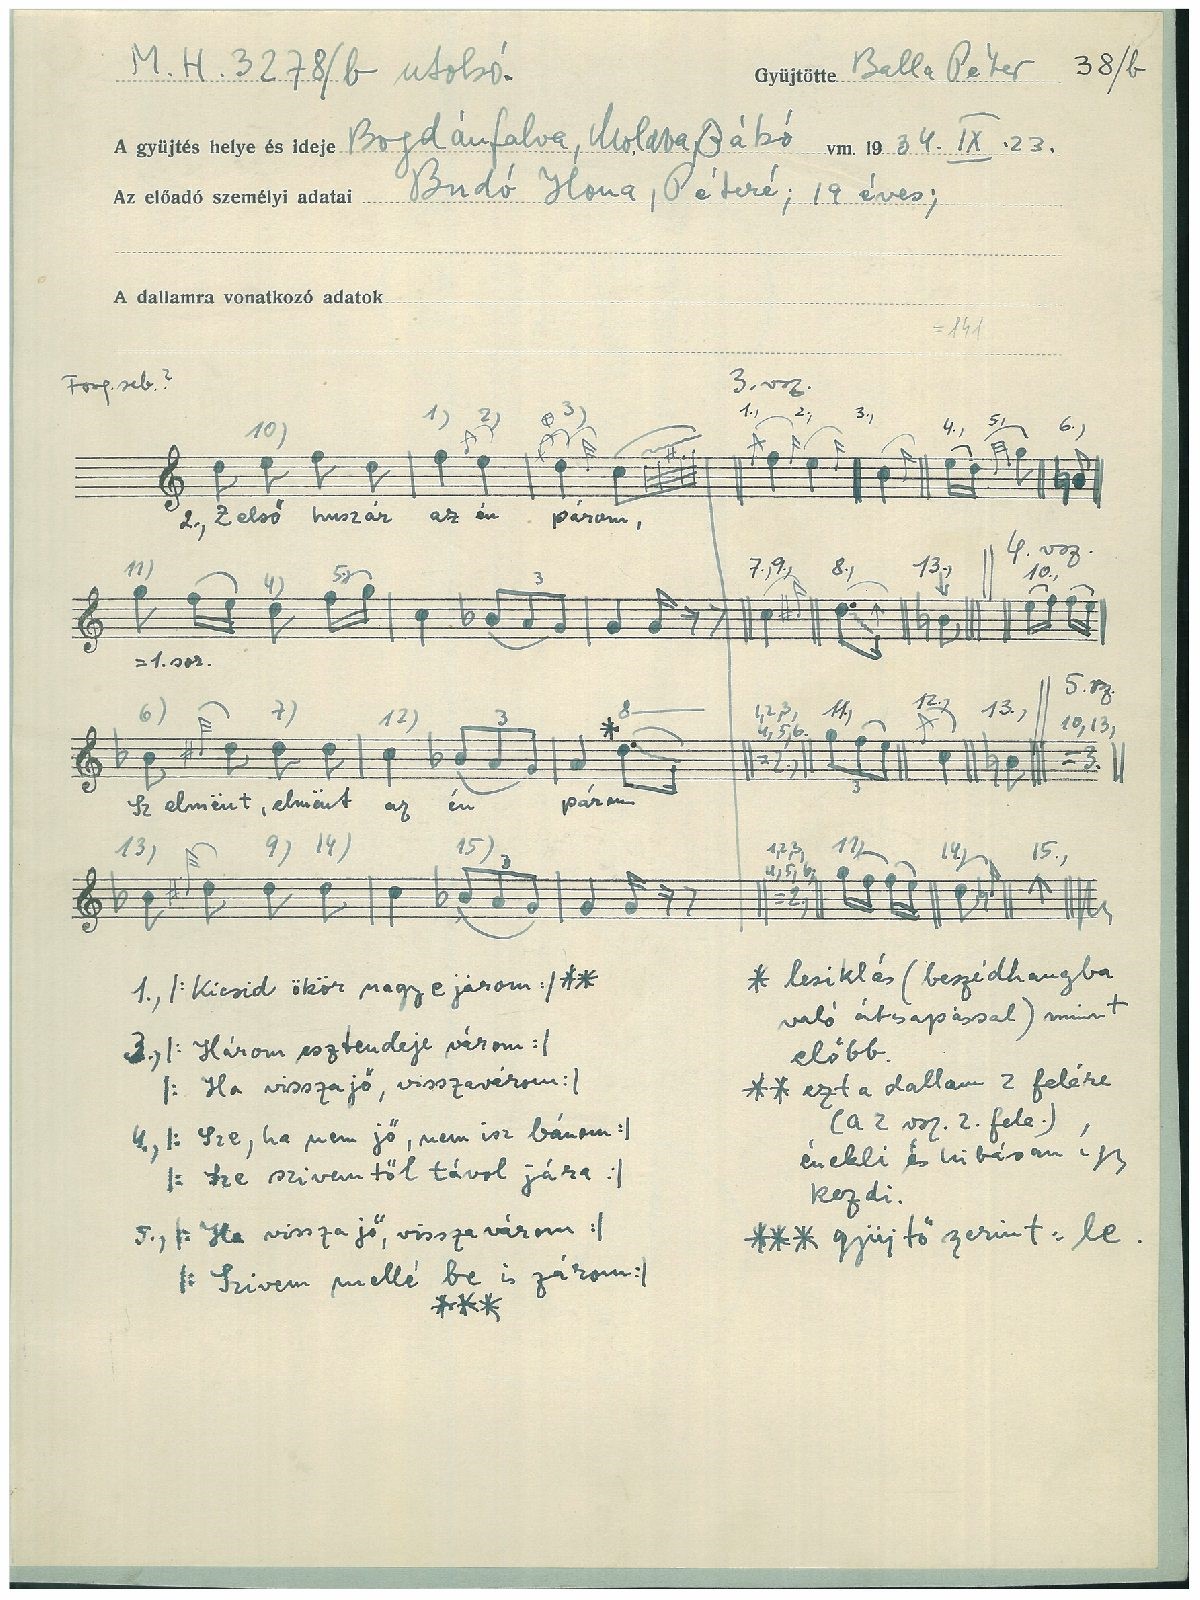 M.H. 3278/b utolsó.
Gyüjtötte Balla Péter 38/b
A gyüjtés helye és ideje Bogdánfalva, Moldva, Bákó vm. 1934. IX. 23.
Az előadó személyi adatai Budó Ilona, Péteré; 19 éves;
A dallamra vonatkozó adatok
=141
Forg. seb.? 3. vsz.
10) 1) 2) 3) 1., 2., 3., 4., 5., 6.,
2., Z első huszár az én párom,
11) 4) 5) 3 7., 9., 8., 13., 4. vsz. 10.,
=1. sor.
6) 7) 12) 3 * 8 1,2,3, 4,5,6. =2., 11, 3 12., 13., 5. vsz. 10, 13, =3.
Sz elmënt, elmënt az én párom
13) 9) 14) 15) 3 1,2,3, 4,5,6, =2., 11, 14, 15.,
1., /: Kicsid ökör nagy e járom :/ **
3., /: Három esztendeje várom :/
/: Ha visszajő, visszavárom :/
4., /: Sze, ha nem jő, nem isz bánom :/
/: Sze szivemtől távol jára :/
5., /: Ha visszajő, visszavárom :/
/: Szivem mellé be is zárom :/
***
* lesiklás (beszédhangba
való átcsapással) mint
előbb.
** ezt a dallam 2 felére
(a 2 vsz. 2. fele.),
énekli és hibásan így
kezdi.
*** gyüjtő szerint: le.